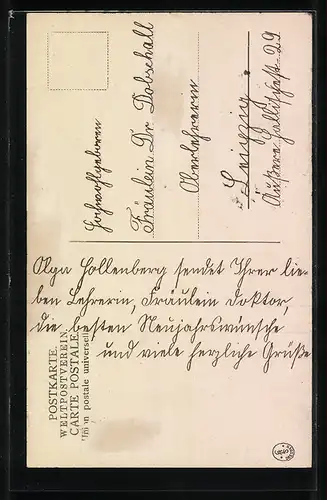 POSTKARTE.
WELTPOSTVEREIN.
CARTE POSTALE.
Union postale universelle
Hochwohlgeboren
Fräulein Dr Dobschall
Oberlehrerin
Leipzig.
Äußere Hallischestr 29
Olga Hollenberg sendet Ihrer lie-
ben Lehrerin, Fräulein Doktor,
die besten Neujahrswünsche
und viele herzliche Grüße